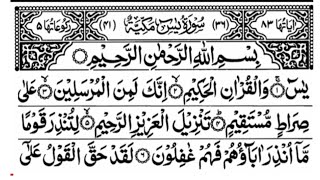 اٰیَاتُهَا ۸۳ (۳۶) سُوْرَةُ یٰسٓ مَکِّیَّةٌ (۴۱) رُکُوْعَاتُهَا ۵
بِسْمِ اللّٰهِ الرَّحْمٰنِ الرَّحِیْمِ
یٰسٓ ۱ وَالْقُرْاٰنِ الْحَکِیْمِ ۲ اِنَّکَ لَمِنَ الْمُرْسَلِیْنَ ۳ عَلٰی
صِرَاطٍ مُّسْتَقِیْمٍ ۴ تَنْزِیْلَ الْعَزِیْزِ الرَّحِیْمِ ۵ لِتُنْذِرَ قَوْمًا
مَّاۤ اُنْذِرَ اٰبَآؤُهُمْ فَهُمْ غٰفِلُوْنَ ۶ لَقَدْ حَقَّ الْقَوْلُ عَلٰۤی